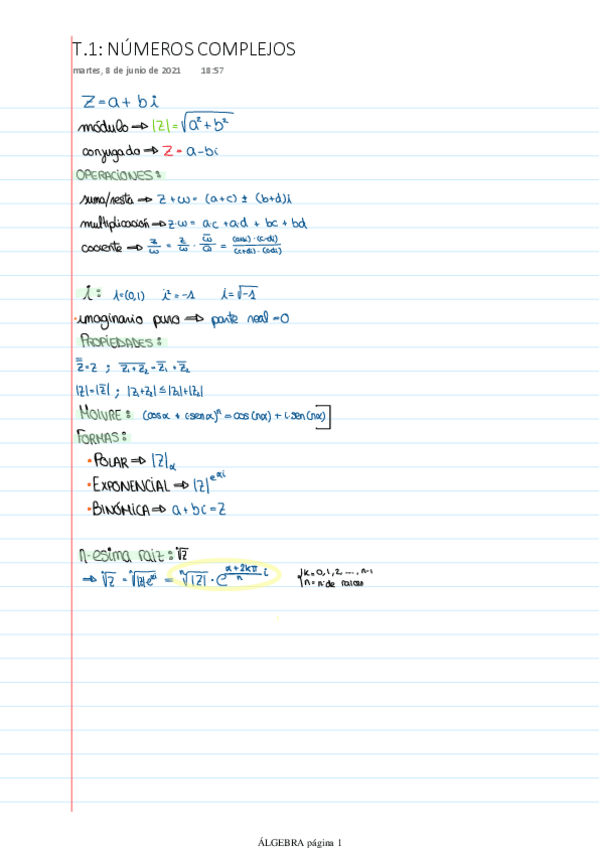 T.1: NÚMEROS COMPLEJOS
martes, 8 de junio de 2021 18:57
Z=a+bi
módulo ⇒ |Z|=√a²+b²
conjugado ⇒ Z = a-bi
OPERACIONES:
suma/resta ⇒ z+ω= (a+c) ± (b+d)i
multiplicación ⇒ z·ω= ac+ad + bc + bd
cociente ⇒ z/ω = z/ω · ω̅/ω̅ =
i: i=(0,1) i²=-1 i=√-1
·imaginario puro ⇒ parte real =0
PROPIEDADES:
z̿=z ; z̅₁+z̅₂ = z̅₁+z̅₂
|z|=|z̅| ; |z₁+z₂| ≤ |z₁|+|z₂|
MOIVRE: (cosα + isenα)ⁿ = cos(nα) + i sen(nα)
FORMAS:
·POLAR ⇒ |Z|α
·EXPONENCIAL ⇒ |Z|e^αi
·BINÓMICA ⇒ a+bi=Z
n-esima raiz: ⁿ√z
⇒ ⁿ√z = ⁿ√|z|e^αi = ⁿ√|Z| · e^(α+2kπ/n)i k=0,1,2 ...., n-1
n= nº de raices
ÁLGEBRA página 1